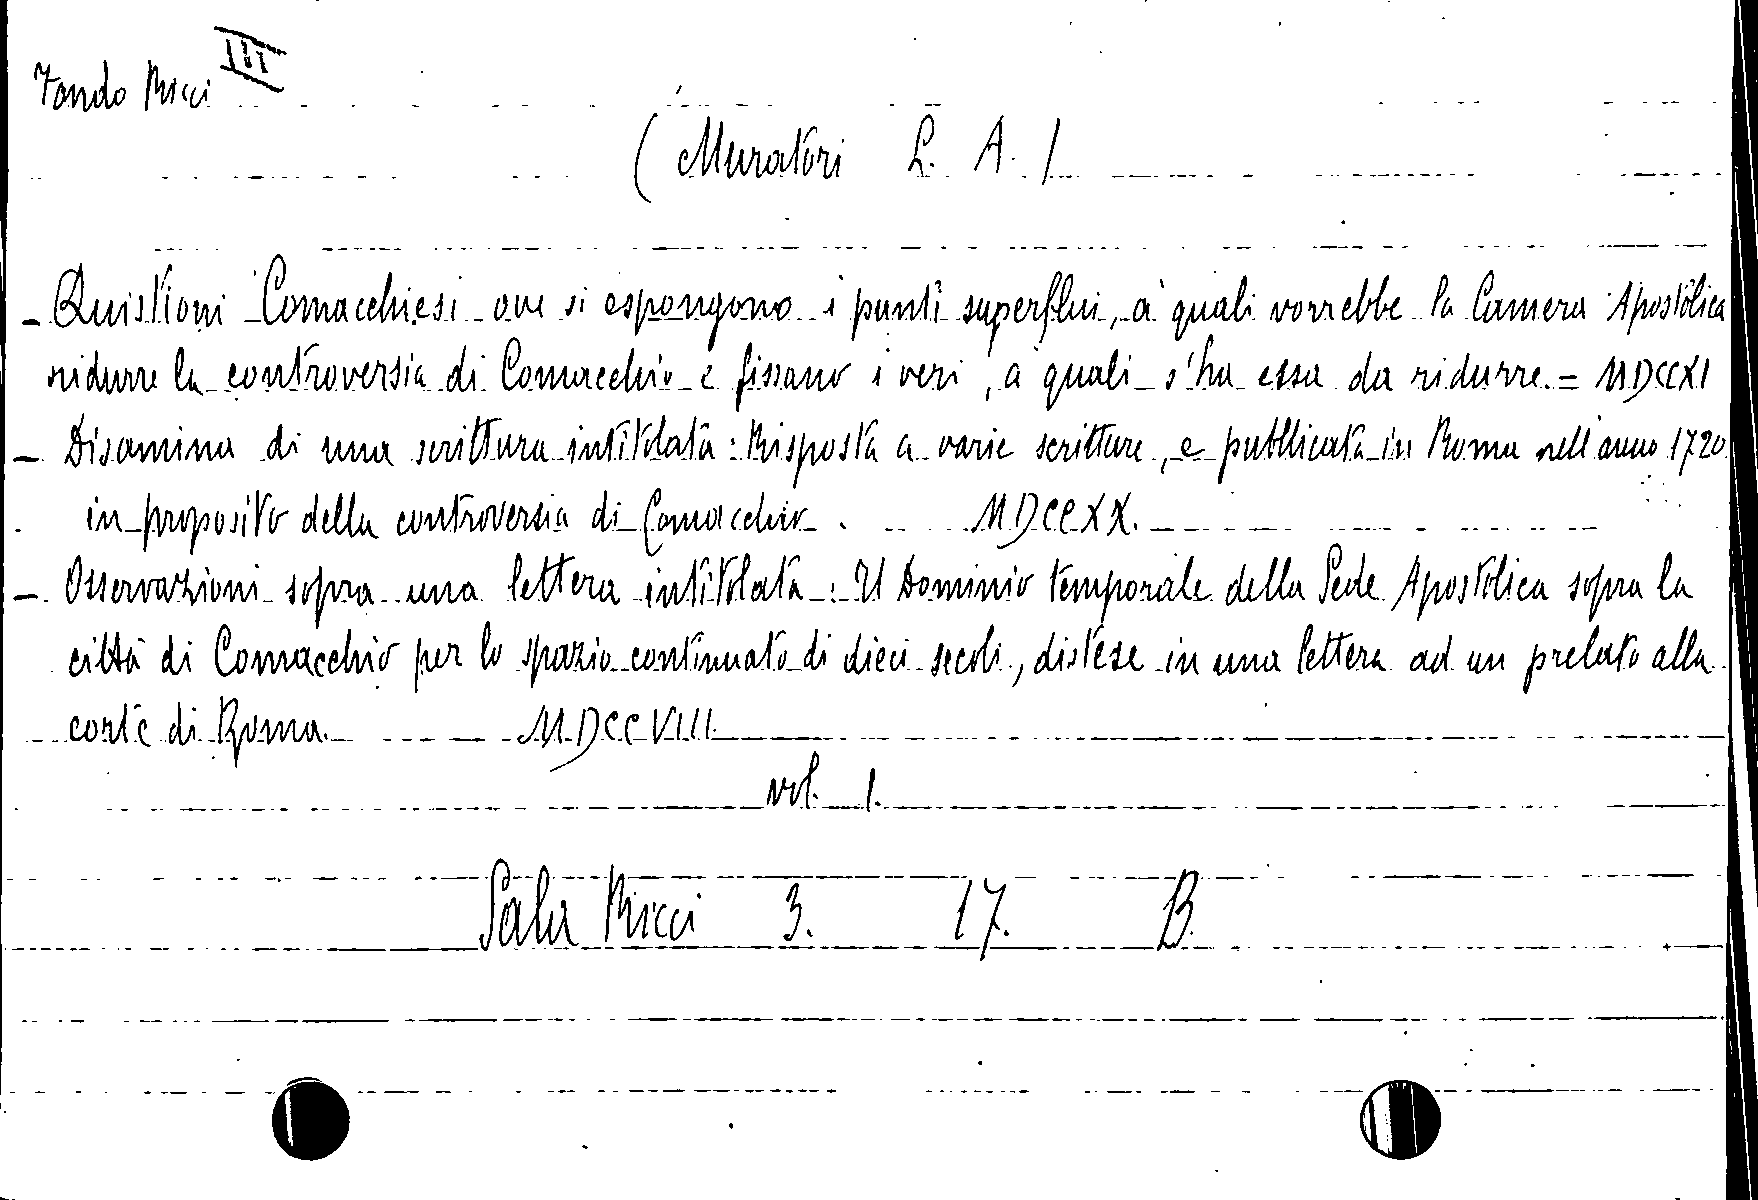 Fondo Ricci III
( Muratori L. A. )
- Quistioni Comacchiesi ove si espongono i punti superflui, a' quali vorrebbe la Camera Apostolica
ridurre la controversia di Comacchio e fissano i veri, a' quali s'ha essa da ridurre. = MDCCXI
- Disamina di una scrittura intitolata: Risposta a varie scritture, e pubblicata in Roma nell'anno 1720
in proposito della controversia di Comacchio. MDCCXX.
- Osservazioni sopra una lettera intitolata: Il Dominio temporale della Sede Apostolica sopra la
città di Comacchio per lo spazio continuato di dieci secoli, distese in una lettera ad un prelato alla
corte di Roma. MDCCVIII.
vol. 1.
Sala Ricci 3. 17. B.